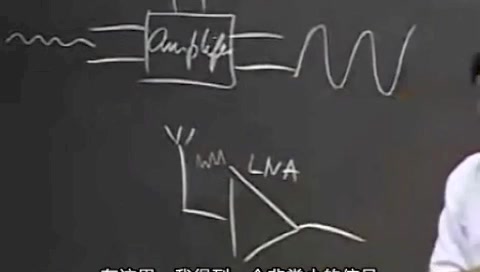 Amplifer
LNA
在这里，我得到一个非常小的信号